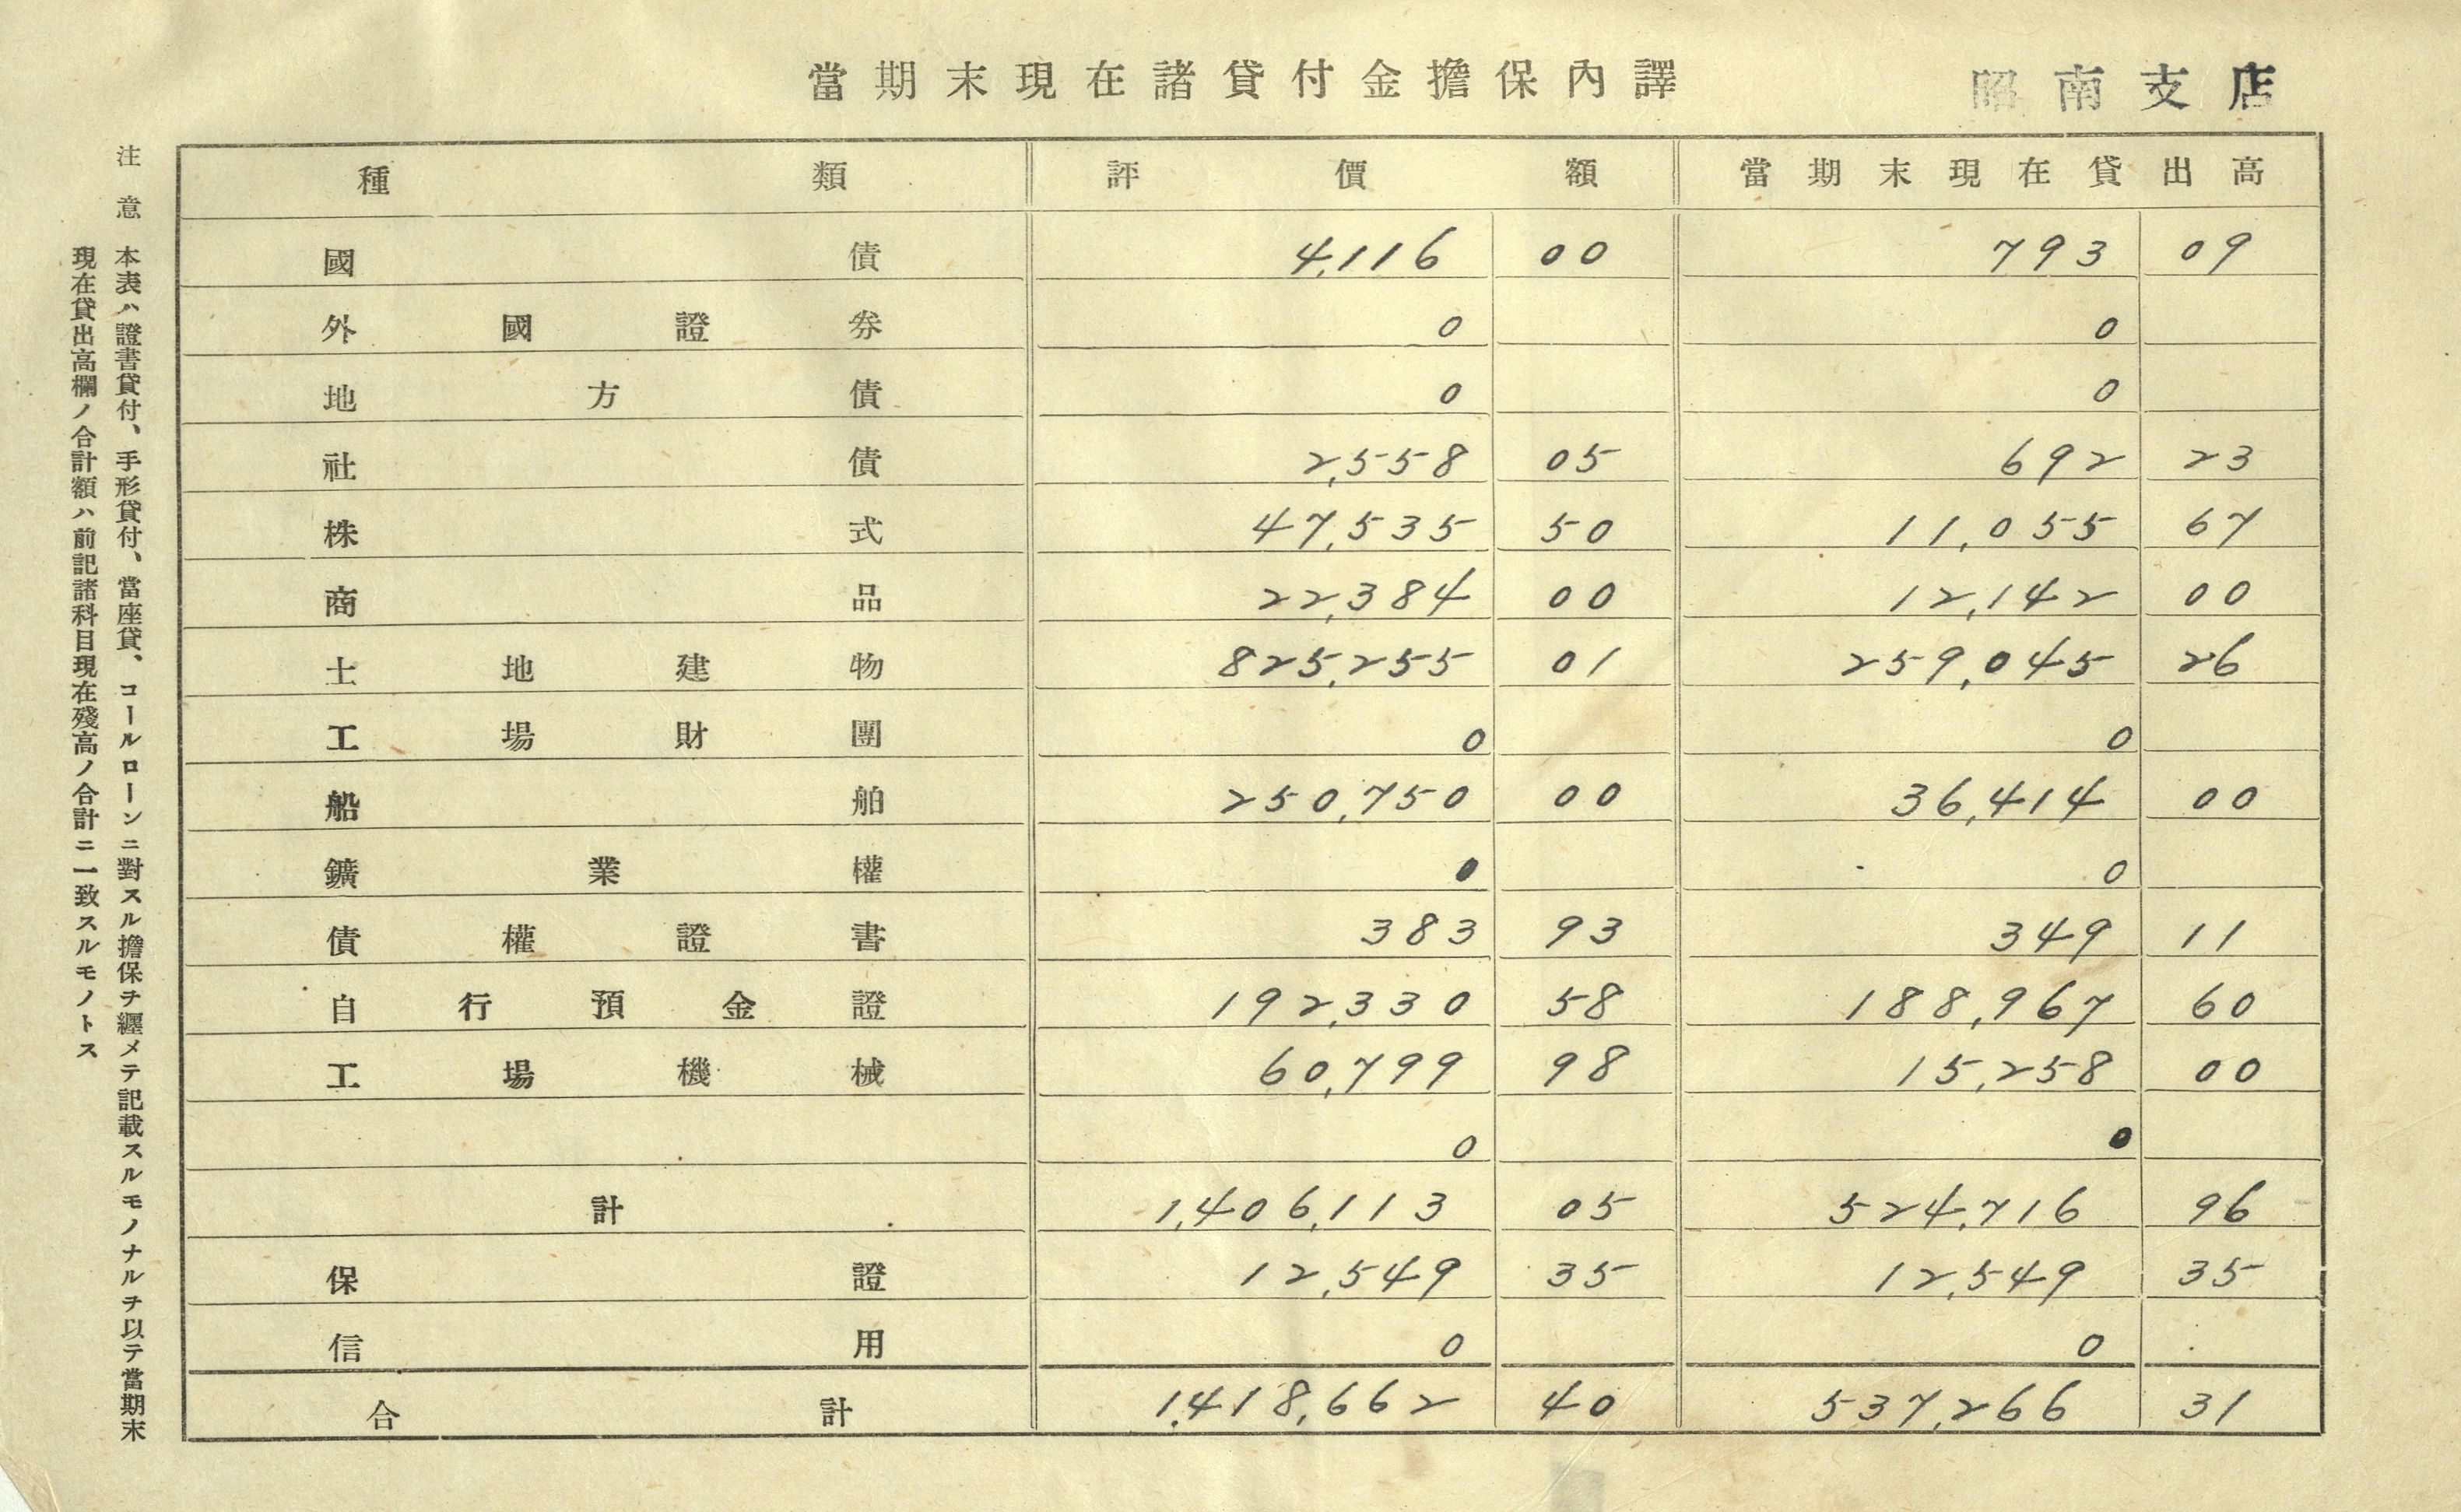 當期末現在諸貸付金擔保內譯
昭南支店
種類 評價額 當期末現在貸出高
國債 4,116 00 793 09
外國證券 0 0
地方債 0 0
社債 2,558 05 692 23
株式 47,535 50 11,055 67
商品 22,384 00 12,142 00
土地建物 825,255 01 259,045 26
工場財團 0 0
船舶 250,750 00 36,414 00
鑛業權 0 0
債權證書 383 93 349 11
自行預金證 192,330 58 188,967 60
工場機械 60,799 98 15,258 00
0 0
計 1,406,113 05 524,716 96
保證 12,549 35 12,549 35
信用 0 0
合計 1,418,662 40 537,266 31
注意 本表ハ證書貸付、手形貸付、當座貸、コールローンニ對スル擔保ヲ纒メテ記載スルモノナルヲ以テ當期末
現在貸出高欄ノ合計額ハ前記諸科目現在殘高ノ合計ニ一致スルモノトス